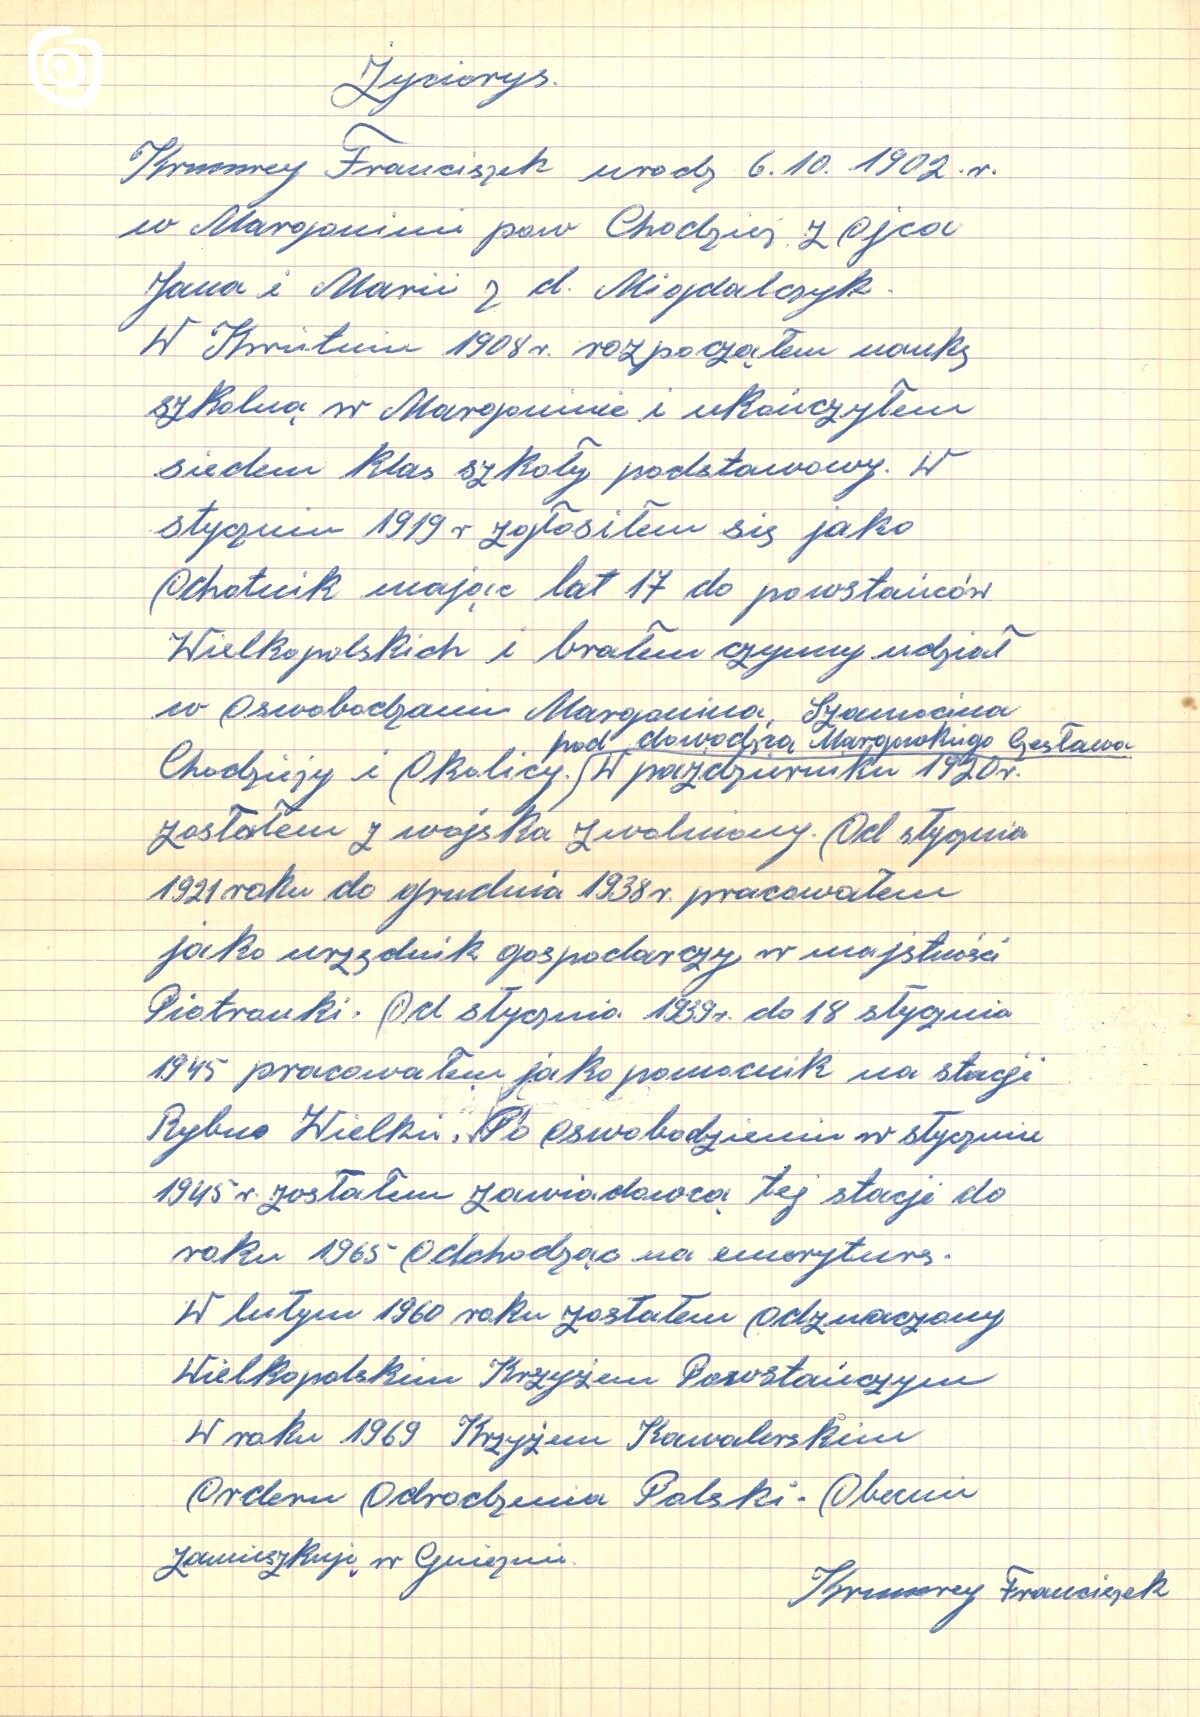 Życiorys.
Krumrey Franciszek urodz 6.10.1902.r.
w Margoninie pow Chodzież z Ojca
Jana i Marii z d. Migdalczyk.
W Kwietniu 1908 r. rozpocząłem naukę
szkolną w Margoninie i ukończyłem
siedem klas szkoły podstawowy. W
styczniu 1919 r zgłosiłem się jako
Ochotnik mając lat 17 do powstańców
Wielkopolskich i brałem czynny udział
w Oswobodzaniu Margonina, Szamocina
pod dowodźcą Margowskiego Czesława
Chodzieży i Okolicy. W październiku 1920r.
zostałem z wojska zwolniony. Od stycznia
1921 roku do grudnia 1938 r. pracowałem
jako urzędnik gospodarczy w majętności
Piotrowki. Od stycznia 1939r. do 18 stycznia
1945 pracowałem jako pomocnik na stacji
Rybno Wielkie. Po Oswobodzieniu w styczniu
1945 r. zostałem zawiadowcą tej stacji do
roku 1965 Odchodząc na emeryturę.
W lutym 1960 roku zostałem Odznaczony
Wielkopolskim Krzyżem Powstańczym
W roku 1969 Krzyżem Kawalerskim
Orderu Odrodzenia Polski. Obecnie
zamieszkuję w Gnieźnie.
Krumrey Franciszek